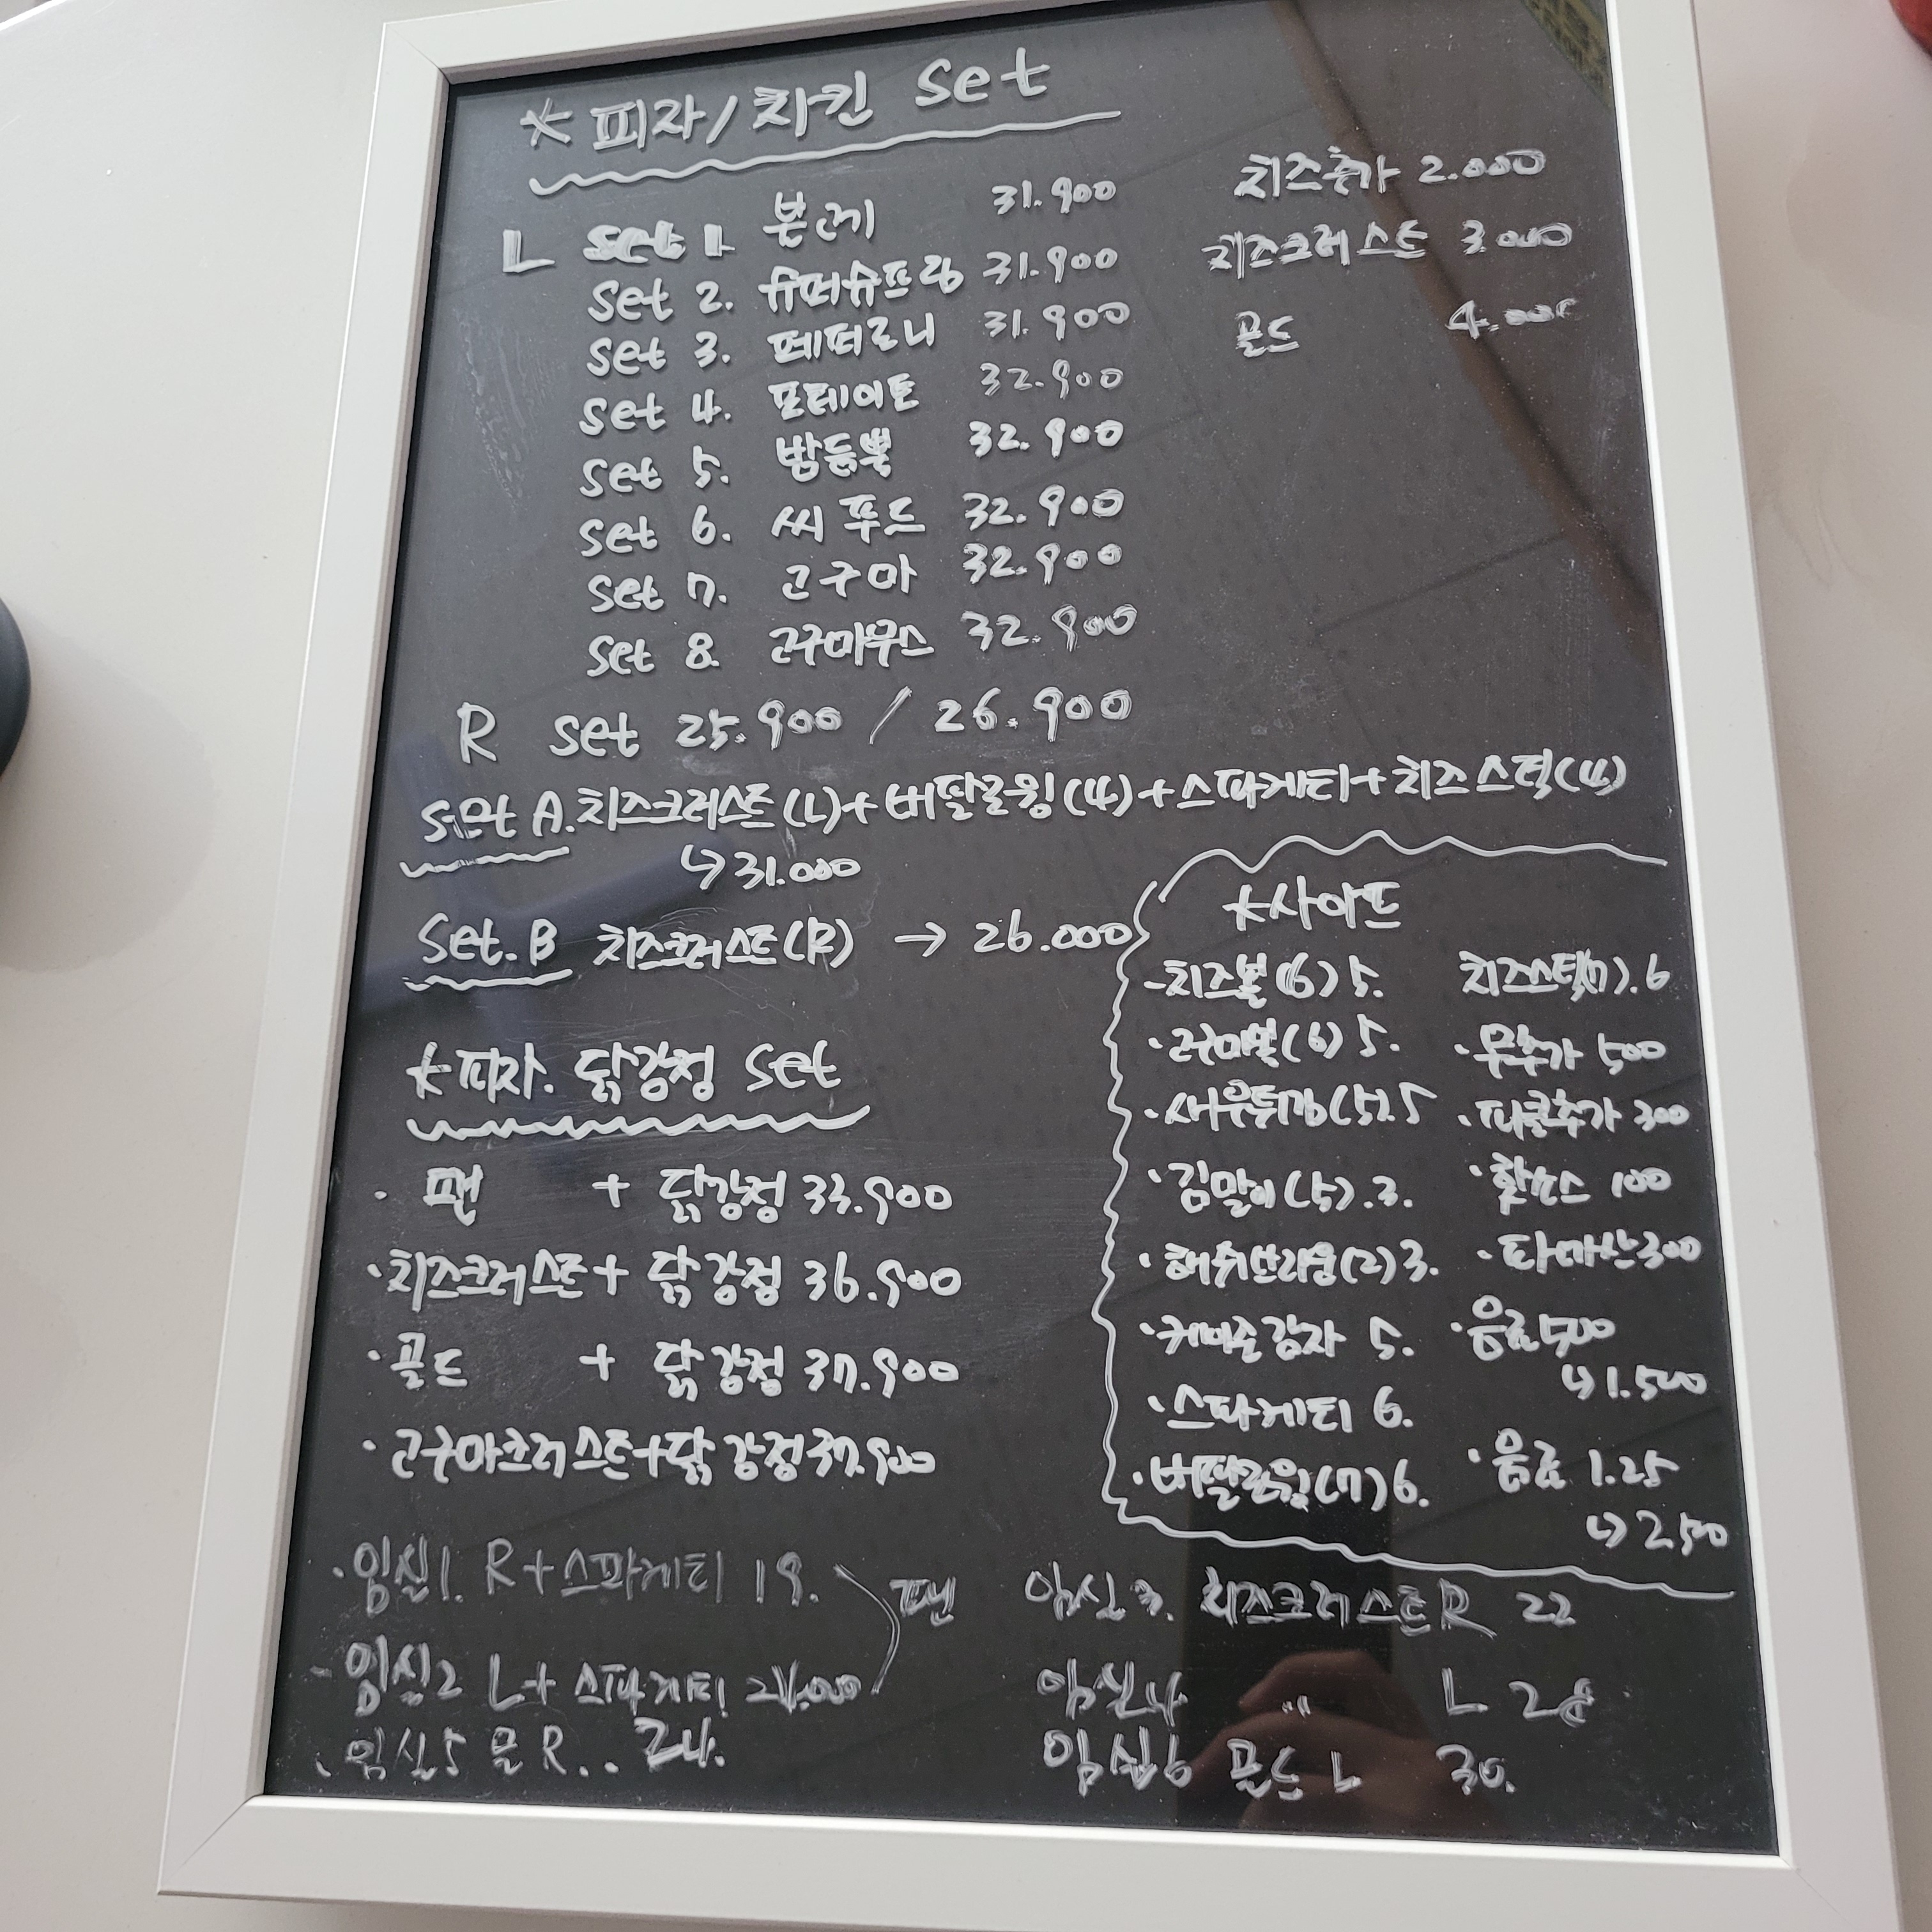 * 피자/치킨 Set
L Set 1. 본레 31.900
Set 2. 슈퍼슈프림 31.900
Set 3. 페퍼로니 31.900
Set 4. 포테이토 32.900
Set 5. 밤듬뿍 32.900
Set 6. 씨푸드 32.900
Set 7. 고구마 32.900
Set 8. 고구마무스 32.900
치즈추가 2.000
치즈크러스트 3.000
골드 4.000
R Set 25.900 / 26.900
Set A. 치즈크러스트(L)+버팔로윙(4)+스파게티+치즈스틱(4)
↳31.000
Set.B 치즈크러스트(R) → 26.000
*피자.닭강정 Set
· 팬 + 닭강정 33.900
·치즈크러스트+ 닭강정 36.900
·골드 + 닭강정 37.900
·고구마크러스트+닭강정37.900
*사이드
-치즈볼(6)5.
·고구마볼(6)5.
·새우튀김(5).5
·김말이(5).3.
·해쉬브라운(2)3.
·케이준감자 5.
·스파게티 6.
·버팔로윙(7)6.
치즈스틱(7).6
·무추가 500
·피클추가 300
·핫소스 100
·파마산300
·음료500
↳1.500
·음료 1.25
↳2.500
·임실1. R+스파게티 19.
-임실2 L+스파게티 24.000
팬
·임실5 골 R.. 24.
임실3. 치즈크러스트R 22
임실4 " L 28
임실6 골드 L 30.